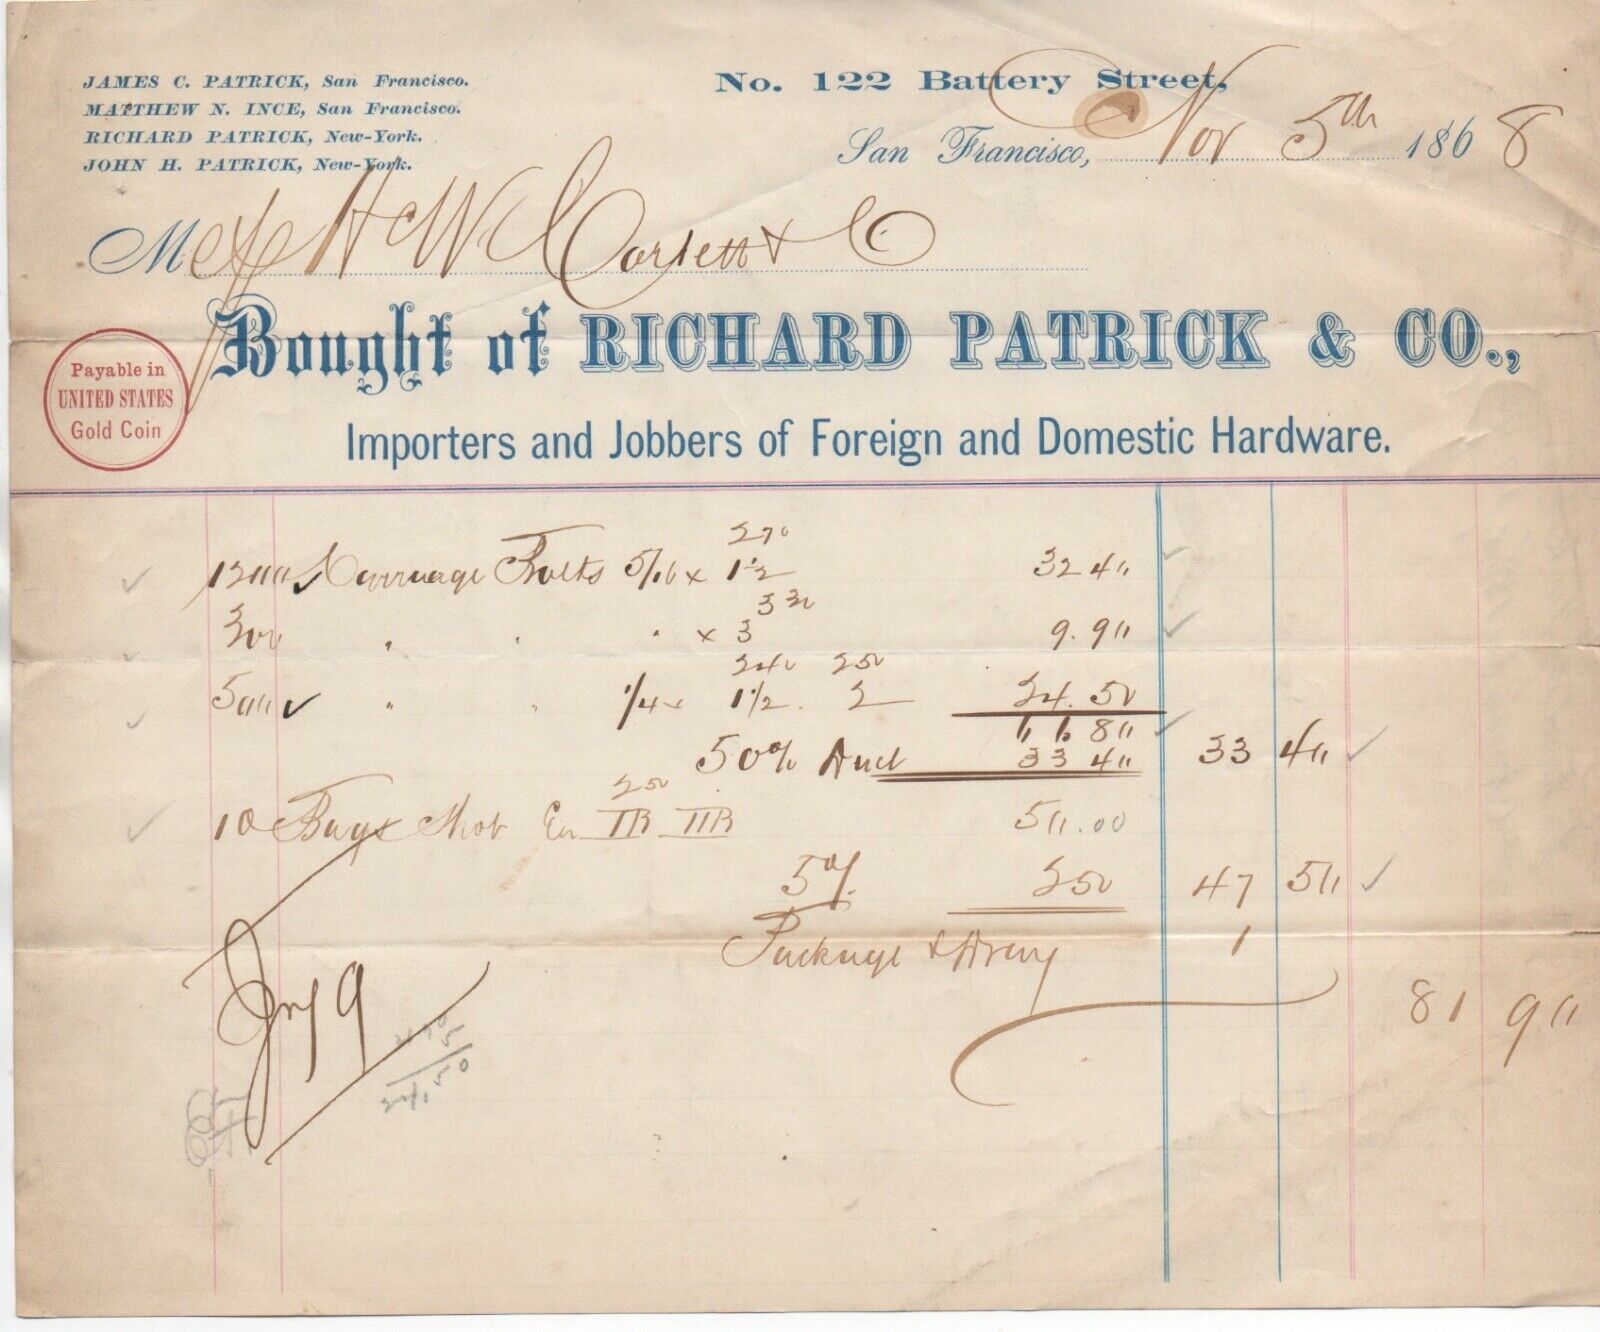 JAMES C. PATRICK, San Francisco.
MATTHEW N. INCE, San Francisco.
RICHARD PATRICK, New-York.
JOHN H. PATRICK, New-York.
No. 122 Battery Street,
San Francisco, Nov 5th 1868
M H W Corsett & Co
Bought of RICHARD PATRICK & CO.,
Payable in
UNITED STATES
Gold Coin
Importers and Jobbers of Foreign and Domestic Hardware.
270
1200 Carriage Bolts 5/16 x 1 1/2 32 40
330
300 " " " x 3 9.90
240 250
500 " " 1/4 x 1 1/2. 2 24.50
66 80
50% 33 40 33 40
250
10 Bags Shot 50.00
5% 250 47 50
Package & Dray 1
81 90
24.50